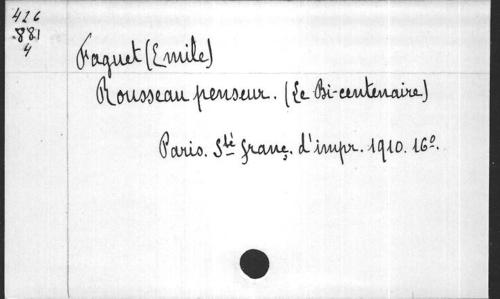 426
.881
4
Faguet (Emile)
Rousseau penseur. (Le Bi-centenaire)
Paris. Sté franç. d'impr. 1910. 16º.